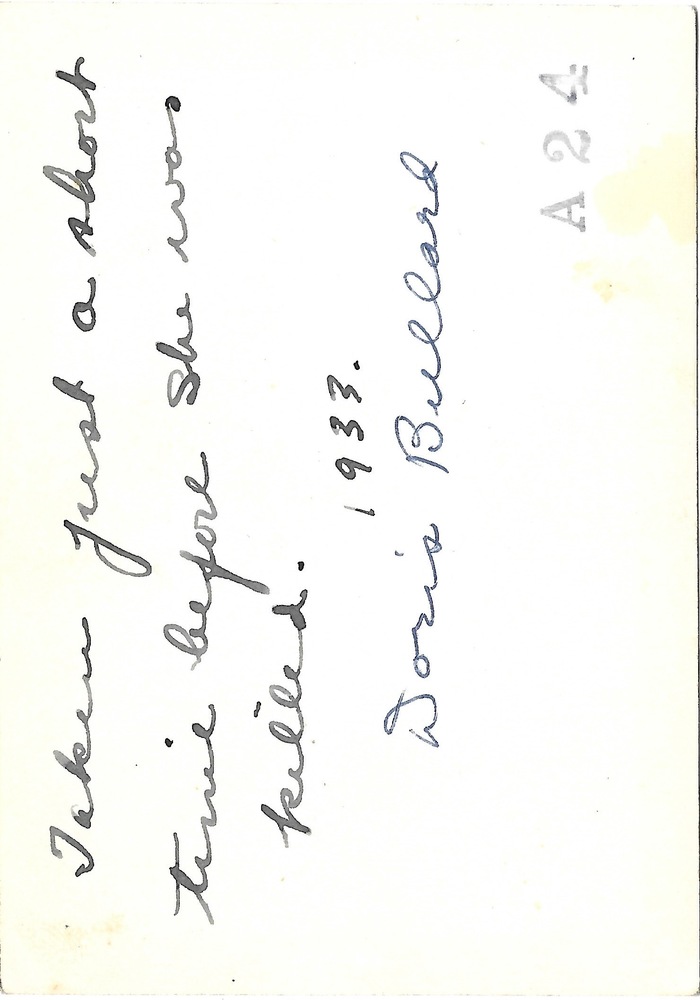 Taken just a short
time before she was
killed.
1933.
Doris Bullard
A24